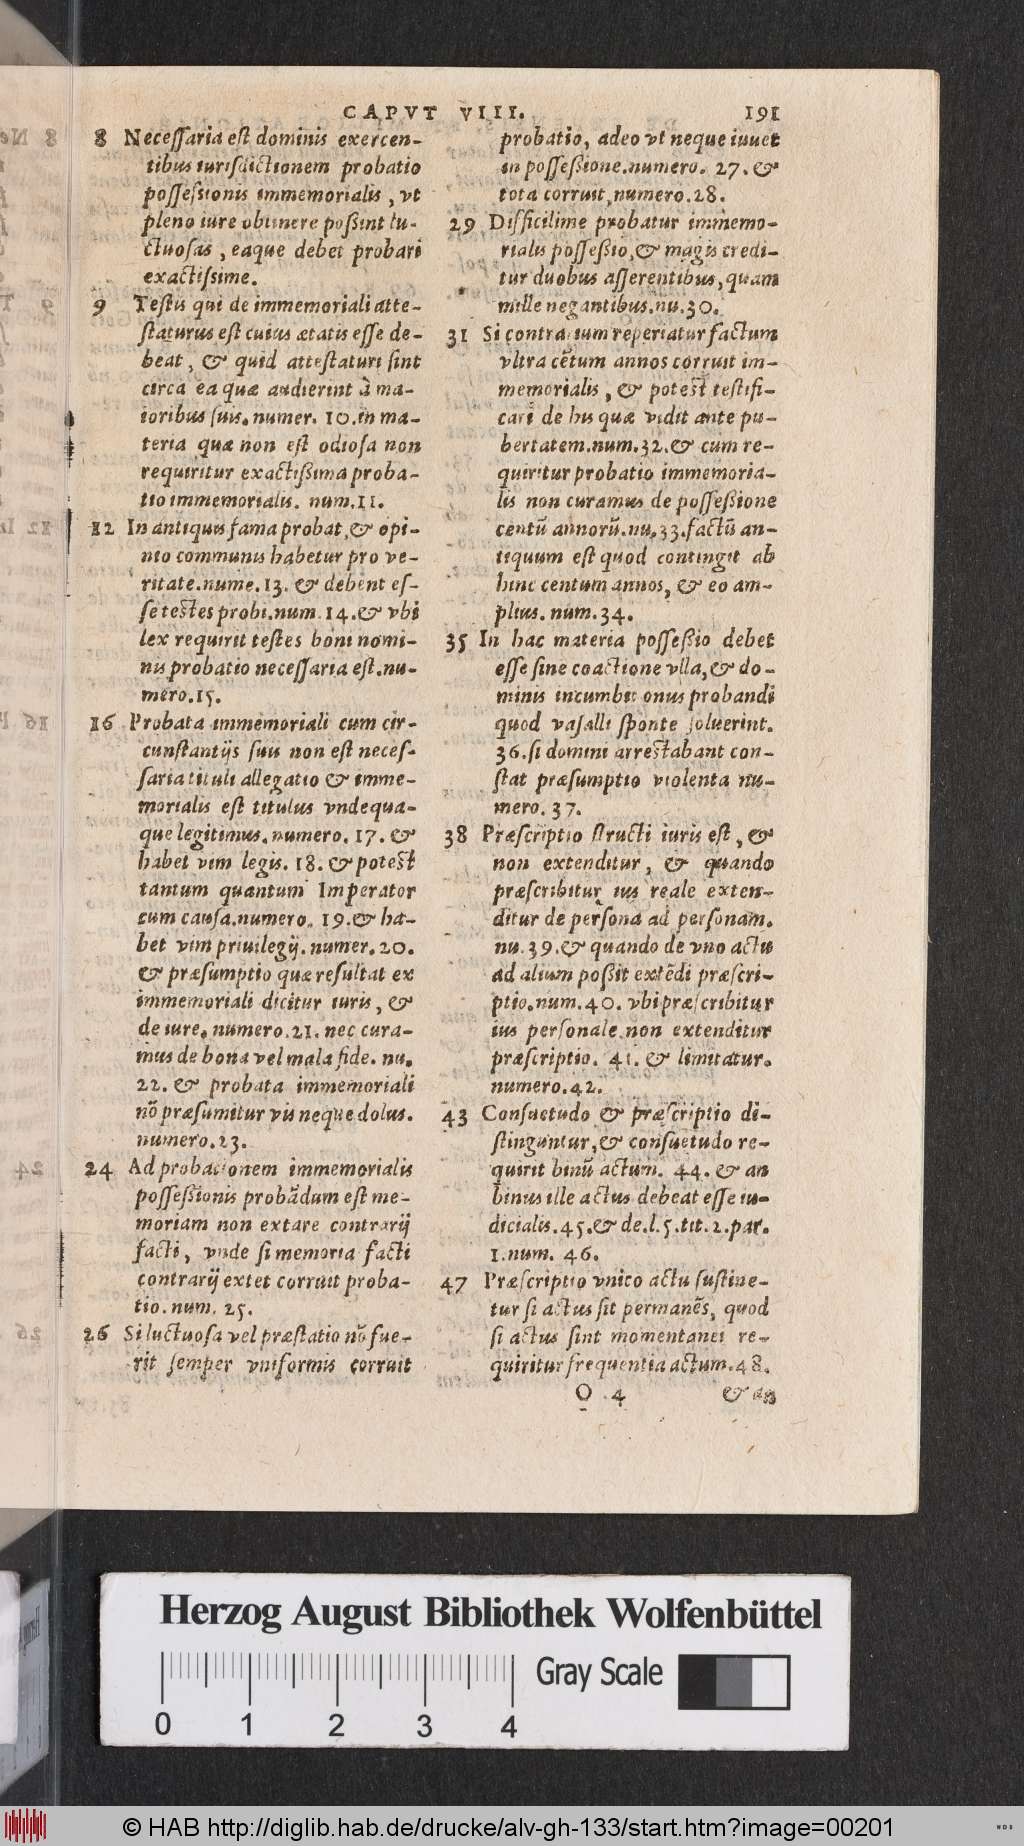 CAPVT VIII. 191
8 Necessaria est dominis exercen-
tibus iurisdictionem probatio
possessionis immemorialis, vt
pleno iure obtinere possint lu-
ctuosas, eaque debet probari
exactissime.
9 Testis qui de immemoriali atte-
staturus est cuius ætatis esse de-
beat, & quid attestaturi sint
circa ea quæ audierint à ma-
ioribus suis. numer. 10. in ma-
teria quæ non est odiosa non
requiritur exactissima proba-
tio immemorialis. num. 11.
12 In antiquis fama probat, & opi-
nio communis habetur pro ve-
ritate. nume. 13. & debent es-
se testes probi. num. 14. & vbi
lex requirit testes boni nomi-
nis probatio necessaria est. nu-
mero. 15.
16 Probata immemoriali cum cir-
cunstantijs suis non est neces-
saria tituli allegatio & imme-
morialis est titulus vndequa-
que legitimus. numero. 17. &
habet vim legis. 18. & potest
tantum quantum Imperator
cum causa. numero. 19. & ha-
bet vim priuilegij. numer. 20.
& præsumptio quæ resultat ex
immemoriali dicitur iuris, &
de iure. numero. 21. nec cura-
mus de bona vel mala fide. nu.
22. & probata immemoriali
nõ præsumitur vis neque dolus.
numero. 23.
24 Ad probationem immemorialis
possessionis probãdum est me-
moriam non extare contrarij
facti, vnde si memoria facti
contrarij extet corruit proba-
tio. num. 25.
26 Si luctuosa vel præstatio nõ fue-
rit semper vniformis corruit
probatio, adeo vt neque iuuet
in possessione. numero. 27. &
tota corruit, numero. 28.
29 Difficilime probatur immemo-
rialis possessio, & magis credi-
tur duobus asserentibus, quam
mille negantibus. nu. 30.
31 Si contrarium reperiatur factum
vltra cẽtum annos corruit im-
memorialis, & potest testifi-
cari de his quæ vidit ante pu-
bertatem. num. 32. & cum re-
quiritur probatio immemoria-
lis non curamus de possessione
centũ annorũ. nu. 33. factũ an-
tiquum est quod contingit ab
hinc centum annos, & eo am-
plius. num. 34.
35 In hac materia possessio debet
esse sine coactione vlla, & do-
minis incumbit onus probandi
quod vasalli sponte soluerint.
36. si domini arrestabant con-
stat præsumptio violenta nu-
mero. 37.
38 Præscriptio stricti iuris est, &
non extenditur, & quando
præscribitur ius reale exten-
ditur de persona ad personam.
nu. 39. & quando de vno actu
ad alium possit extẽdi præscri-
ptio. num. 40. vbi præscribitur
ius personale non extenditur
præscriptio. 41. & limitatur.
numero. 42.
43 Consuetudo & præscriptio di-
stinguntur, & consuetudo re-
quirit binũ actum. 44. & an
binus ille actus debeat esse iu-
dicialis. 45. & de. l. 5. tit. 2. par.
1. num. 46.
47 Præscriptio vnico actu sustine-
tur si actus sit permanẽs, quod
si actus sint momentanei re-
quiritur frequentia actum. 48.
O 4 & an
Herzog August Bibliothek Wolfenbüttel
Gray Scale
0 1 2 3 4
© HAB http://diglib.hab.de/drucke/alv-gh-133/start.htm?image=00201